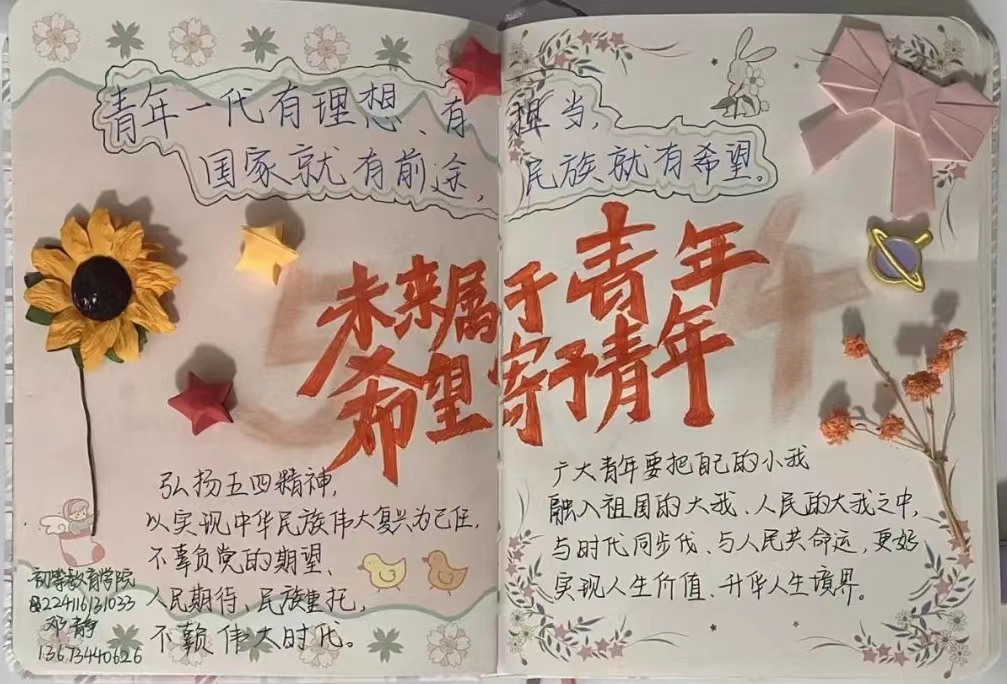 青年一代有理想、有担当,
国家就有前途,民族就有希望。
未来属于青年
希望寄予青年
弘扬五四精神,
以实现中华民族伟大复兴为己任,
不辜负党的期望、
人民期待、民族重托,
不辜伟大时代。
广大青年要把自己的小我
融入祖国的大我、人民的大我之中,
与时代同步伐、与人民共命运,更好
实现人生价值、升华人生境界。
初等教育学院
224116131033
邓静
13673440626